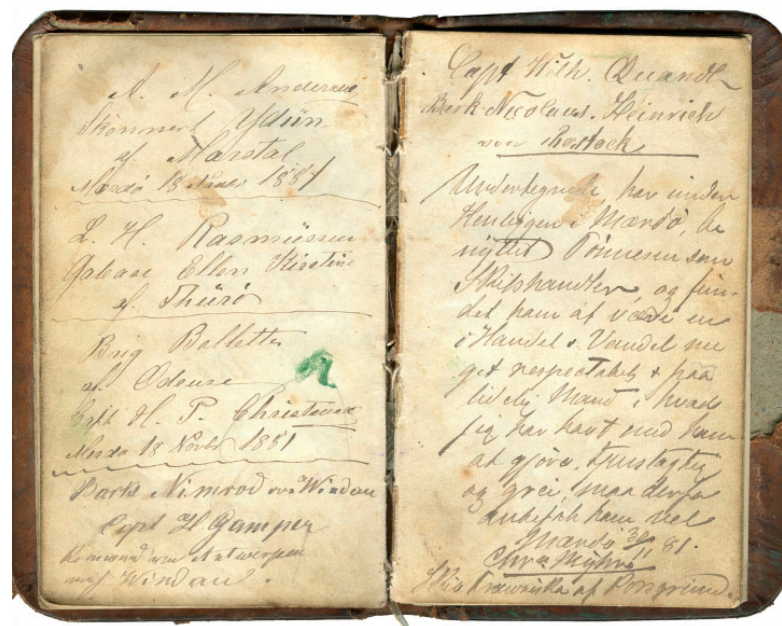 A. M. Andersen
Skonnert Ydun
af Marstal
Mærdö 18 Novbr 1881
L. H. Rasmüssen
Galease Ellen Kirstine
af Thürö
Brig Ballette
af Odense
Capt H. P. Christensen
Merdö 18 Novbr 1881
Bark Nimrod von Windau
Capt H Gamper
Kommend von Antwerpen
nach Windau.
Capt Wilh. Quandt
Bark Nicolaus. Heinrich
von Rostock
Undertegnede har under
Henliggen i Mærdö, be
nyttet Tönnesen som
Skibshandler, og fun-
det ham at være en
i Handel & Vandel me
get respectabel & paa
lidelig Mand, i hvad
jeg har havt med ham
at gjöre,
og grei, maa derfor
anbefale ham vel
Mærdö 30/11 81.
Chr
af Porsgrund.